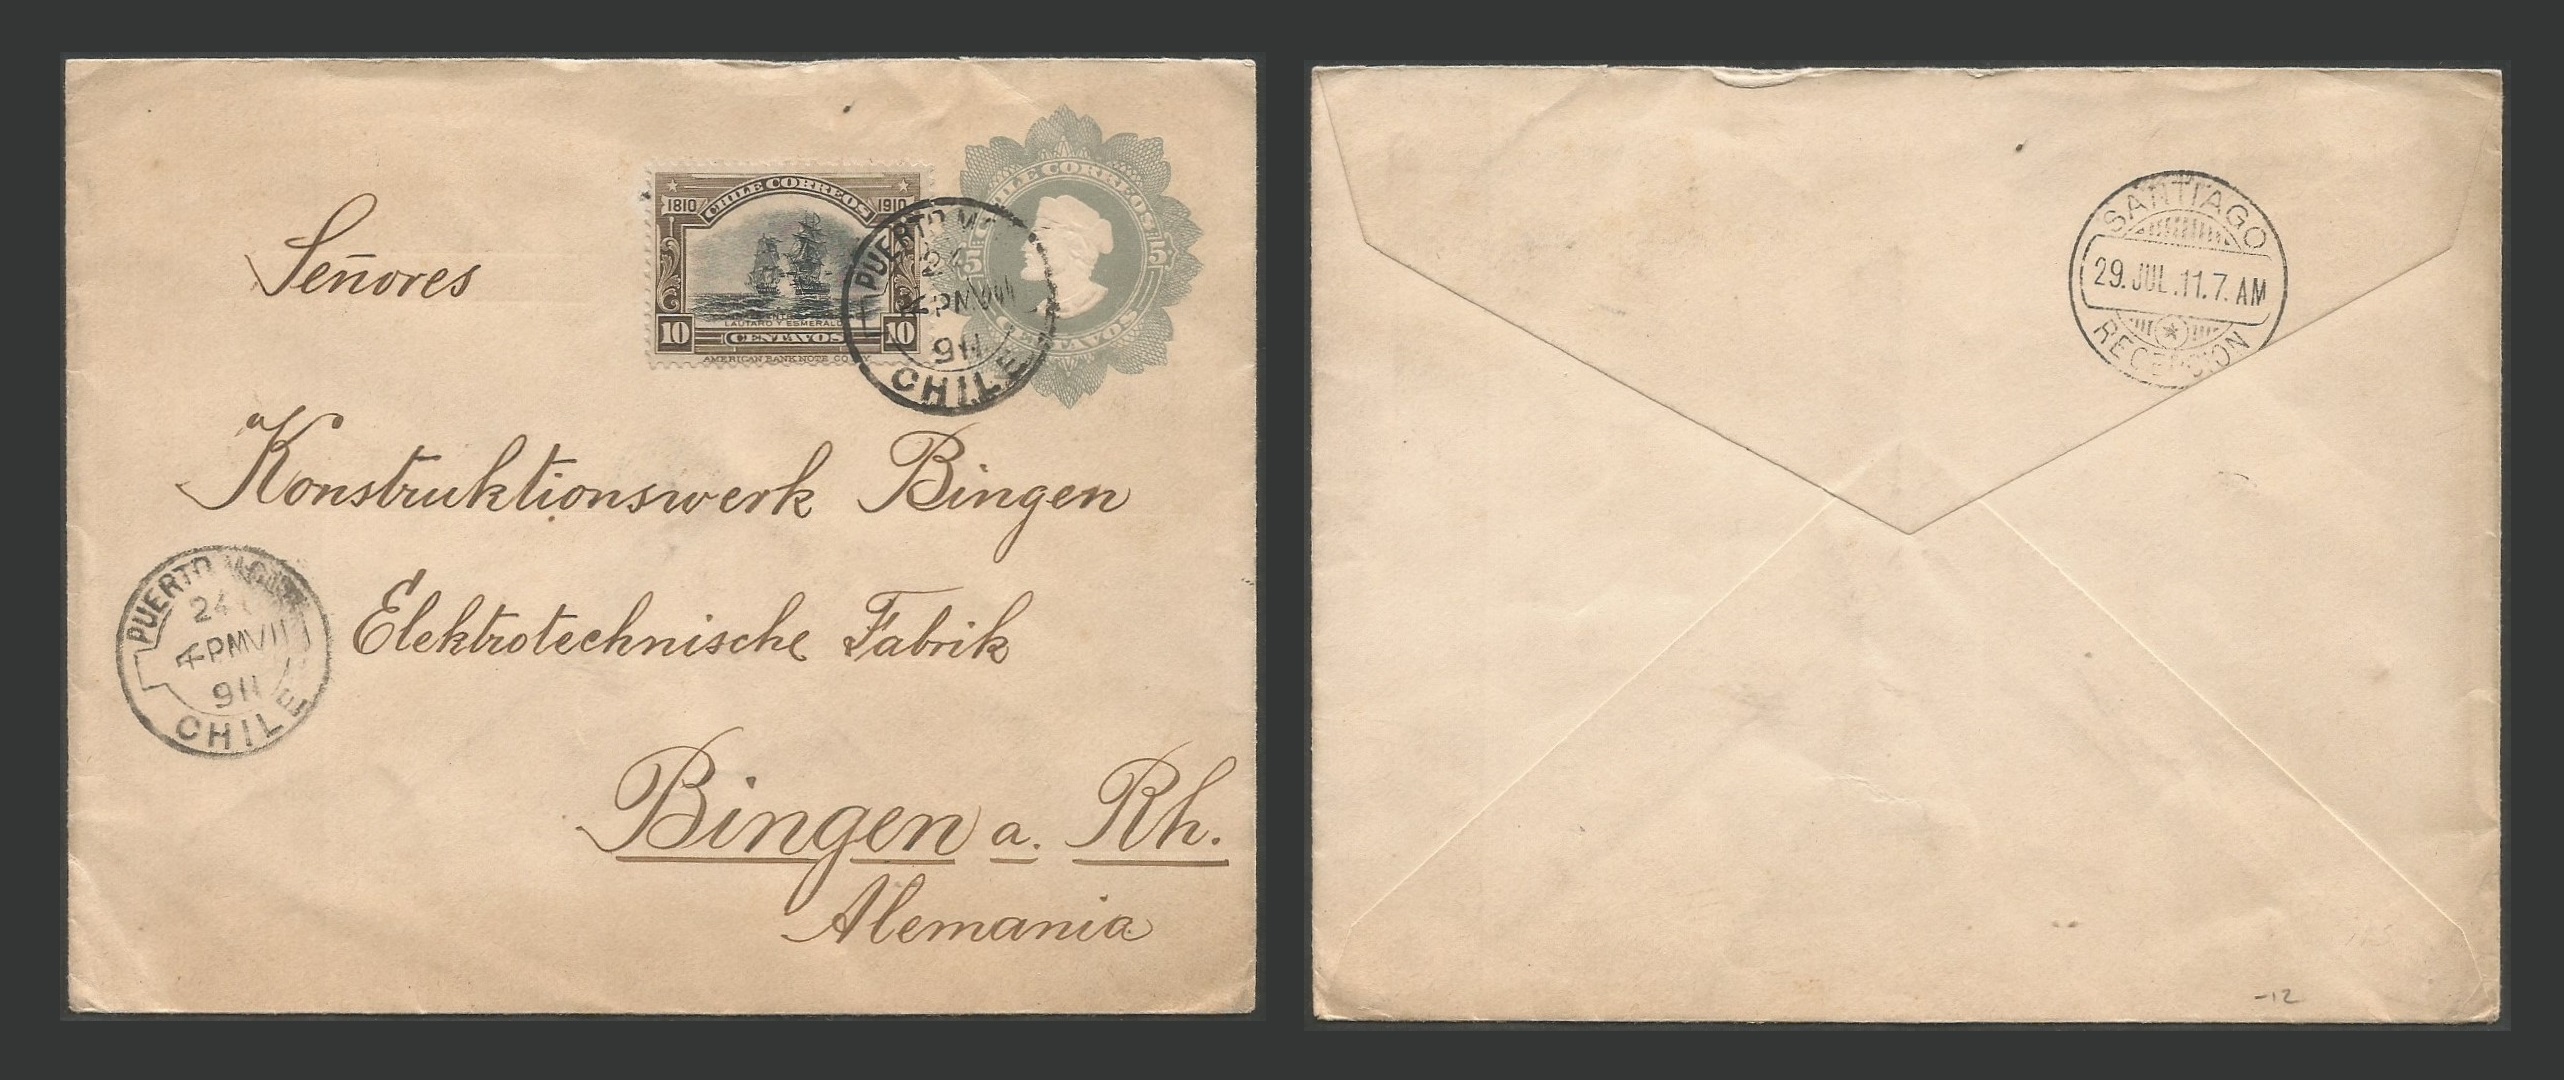 CHILE CORREOS
1810 1910
LAUTARO Y ESMERALDA
10 CENTAVOS 10
AMERICAN BANK NOTE CO. N.Y.
CHILE CORREOS
5 5
CENTAVOS
PUERTO
24
4PMVII
911
CHILE
Señores
Konstruktionswerk Bingen
Elektrotechnische Fabrik
Bingen a. Rh.
Alemania
PUERTO
24
4PMVII
911
CHILE
SANTIAGO
29.JUL.11.7.AM
RECEPCION
-12